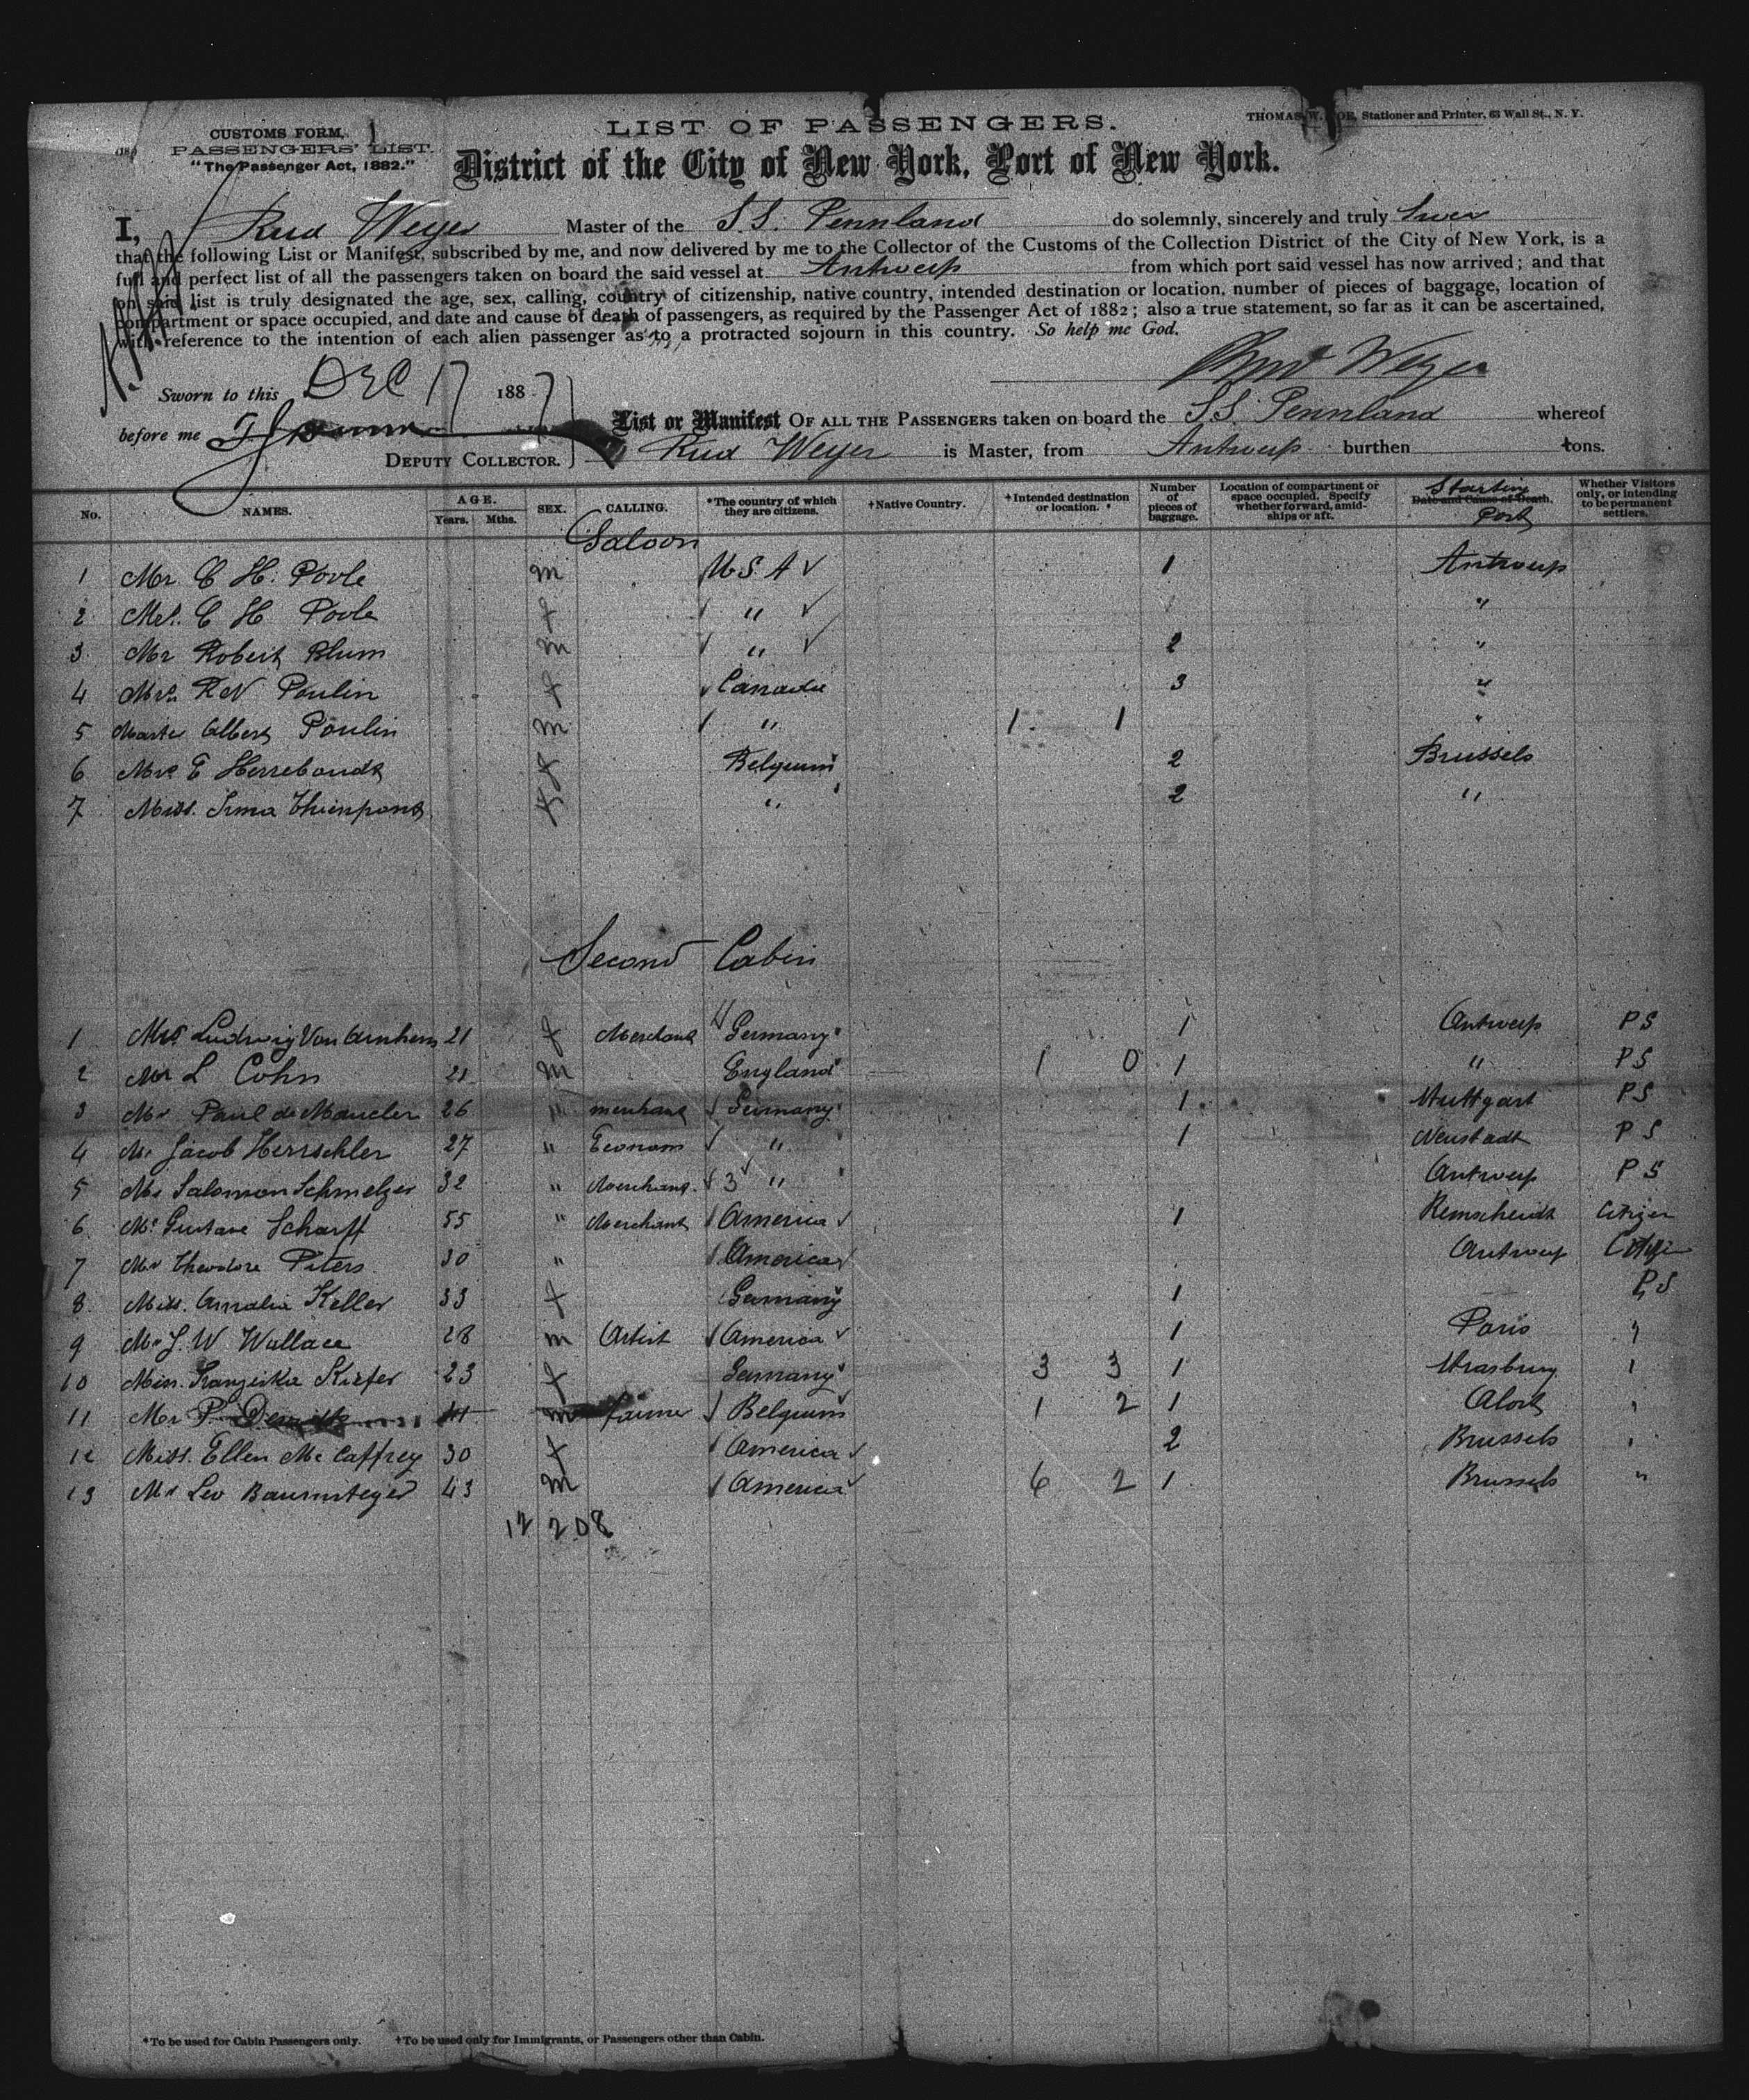 CUSTOMS FORM,
PASSENGERS' LIST.
"The Passenger Act, 1882."
LIST OF PASSENGERS.
THOMAS W. Stationer and Printer, 63 Wall St., N. Y.
District of the City of New York, Port of New York.
I, Rud Weyer Master of the S.S. Pennland do solemnly, sincerely and truly Swear
that the following List or Manifest, subscribed by me, and now delivered by me to the Collector of the Customs of the Collection District of the City of New York, is a
full and perfect list of all the passengers taken on board the said vessel at Antwerp from which port said vessel has now arrived; and that
on said list is truly designated the age, sex, calling, country of citizenship, native country, intended destination or location, number of pieces of baggage, location of
compartment or space occupied, and date and cause of death of passengers, as required by the Passenger Act of 1882; also a true statement, so far as it can be ascertained,
with reference to the intention of each alien passenger as to a protracted sojourn in this country. So help me God.
Rud Weyer
Sworn to this DEC 17 1887
before me
DEPUTY COLLECTOR.
List or Manifest OF ALL THE PASSENGERS taken on board the S.S. Pennland whereof
Rud Weyer is Master, from Antwerp burthen tons.
No. NAMES. AGE. Years. Mths. SEX. CALLING. *The country of which they are citizens. †Native Country. †Intended destination or location. Number of pieces of baggage. Location of compartment or space occupied. Specify whether forward, amidships or aft. Date and Cause of Death. Starting Port Whether Visitors only, or intending to be permanent settlers.
Saloon
1 Mr. C. H. Poole m U.S.A ✓ 1 Antwerp
2 Mrs. C H Poole f " ✓ "
3 Mr Robert Blum m " ✓ 2 "
4 Mrs. R N Poulin f Canada 3 "
5 Master Albert Poulin m " 1 1 "
6 Mrs E Herreboudt f Belgium 2 Brussels
7 Miss. Irma Thienpont f " 2 "
Second Cabin
1 Mrs. Ludwig Von Arnhem 21 f Merchant Germany 1 Antwerp P S
2 Mr L Cohn 21 m England 1 0 1 " P S
3 Mr Paul de Maucler 26 " merchant Germany 1 Stuttgart P S
4 Mr Jacob Herrschler 27 " Econom " 1 Neustadt P S
5 Mr Salomon Schmelzer 32 " Merchant 3 " Antwerp P S
6 Mr Gustave Scharff 55 " Merchant America ✓ 1 Remscheidt Citizen
7 Mr Theodore Peters 30 " America ✓ Antwerp Citizen
8 Miss. Amalia Keller 33 f Germany 1 P S
9 Mr J. W Wallace 28 m Artist America ✓ 1 Paris "
10 Miss. Franziska Kiefer 23 f Germany 3 3 1 Strasburg "
11 Mr P. m farmer Belgium 1 2 1 Alost "
12 Miss. Ellen Mc Caffrey 30 f America ✓ 2 Brussels "
13 Mr Leo Baumsteyer 43 m America 6 2 1 Brussels "
12 208
*To be used for Cabin Passengers only. †To be used only for Immigrants, or Passengers other than Cabin.